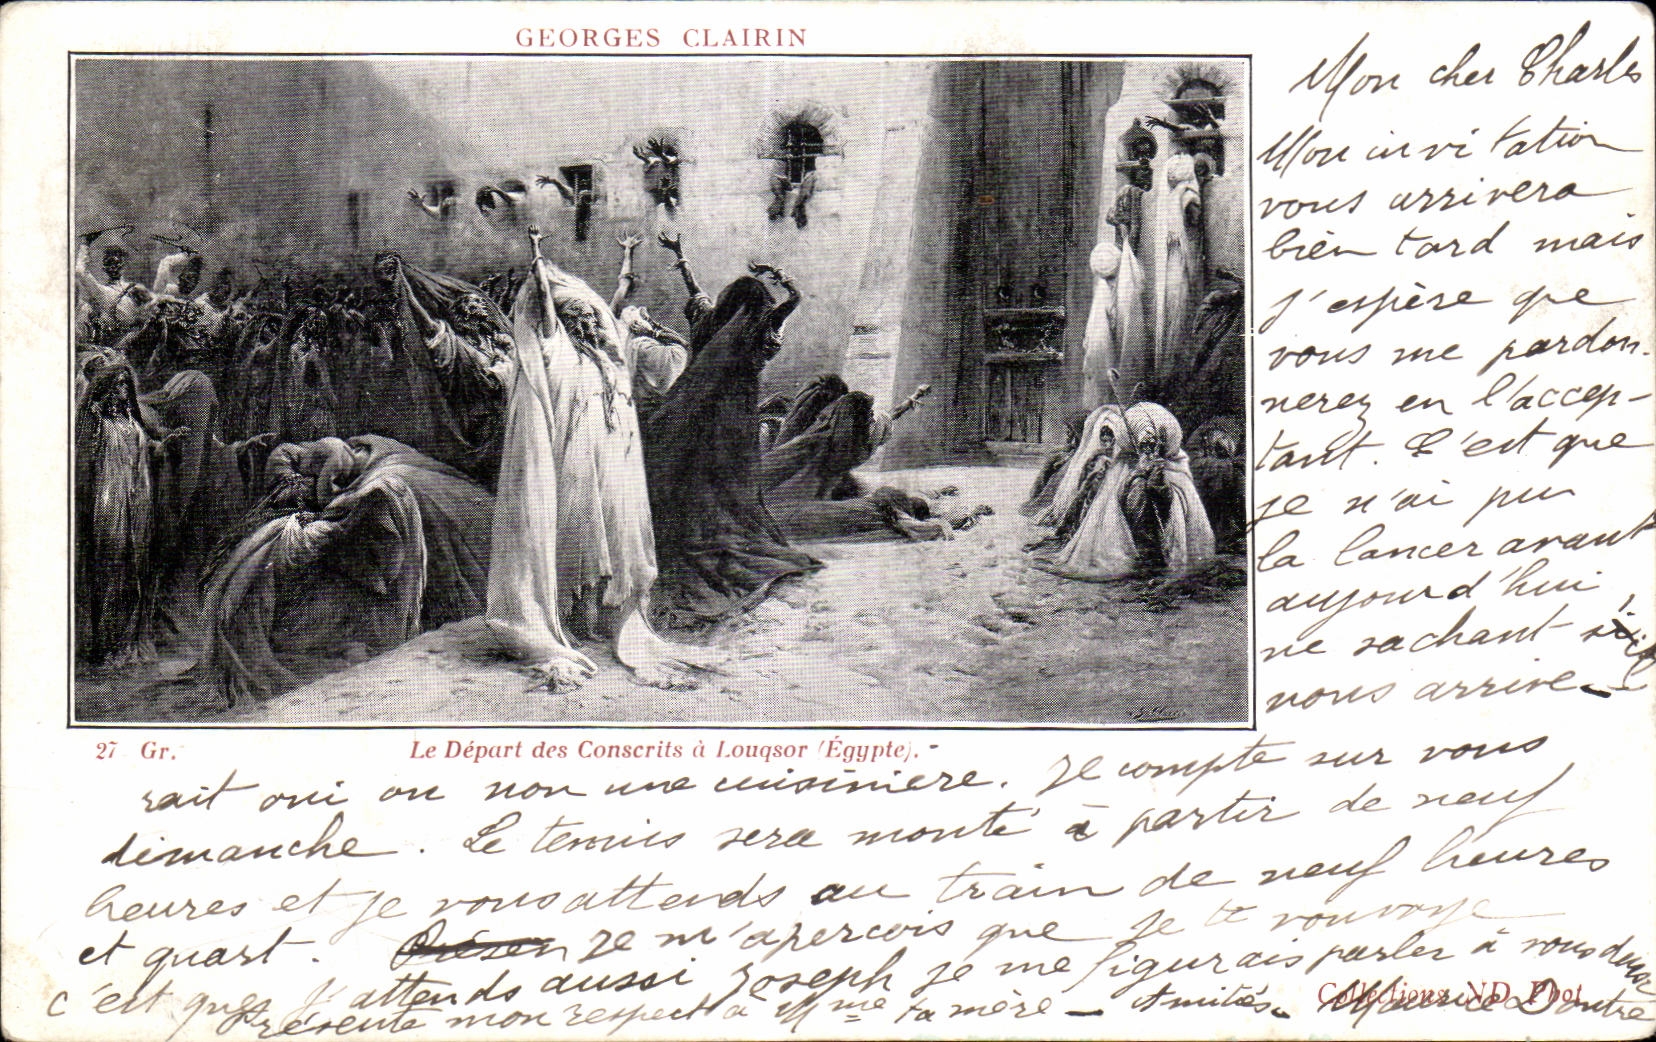 GEORGES CLAIRIN
Mon cher Charles
Mon invitation
vous arrivera
bien tard mais
j'espère que
vous me pardon-
nerez en l'accep-
tant. C'est que
je n'ai pu
la lancer avant
aujourd'hui
ne sachant si
nous arrive-
27 Gr.
Le Départ des Conscrits à Louqsor (Égypte).
rait oui ou non une cuisinière. Je compte sur vous
dimanche. Le tennis sera monté à partir de neuf
heures et je vous attends au train de neuf heures
et quart. Je m'aperçois que je te vouvoye
c'est que je me figurais parler à vous deux
J'attends aussi Joseph
Présente mon respect à Mme ta mère - Amitiés. Maurice
Collections ND Phot